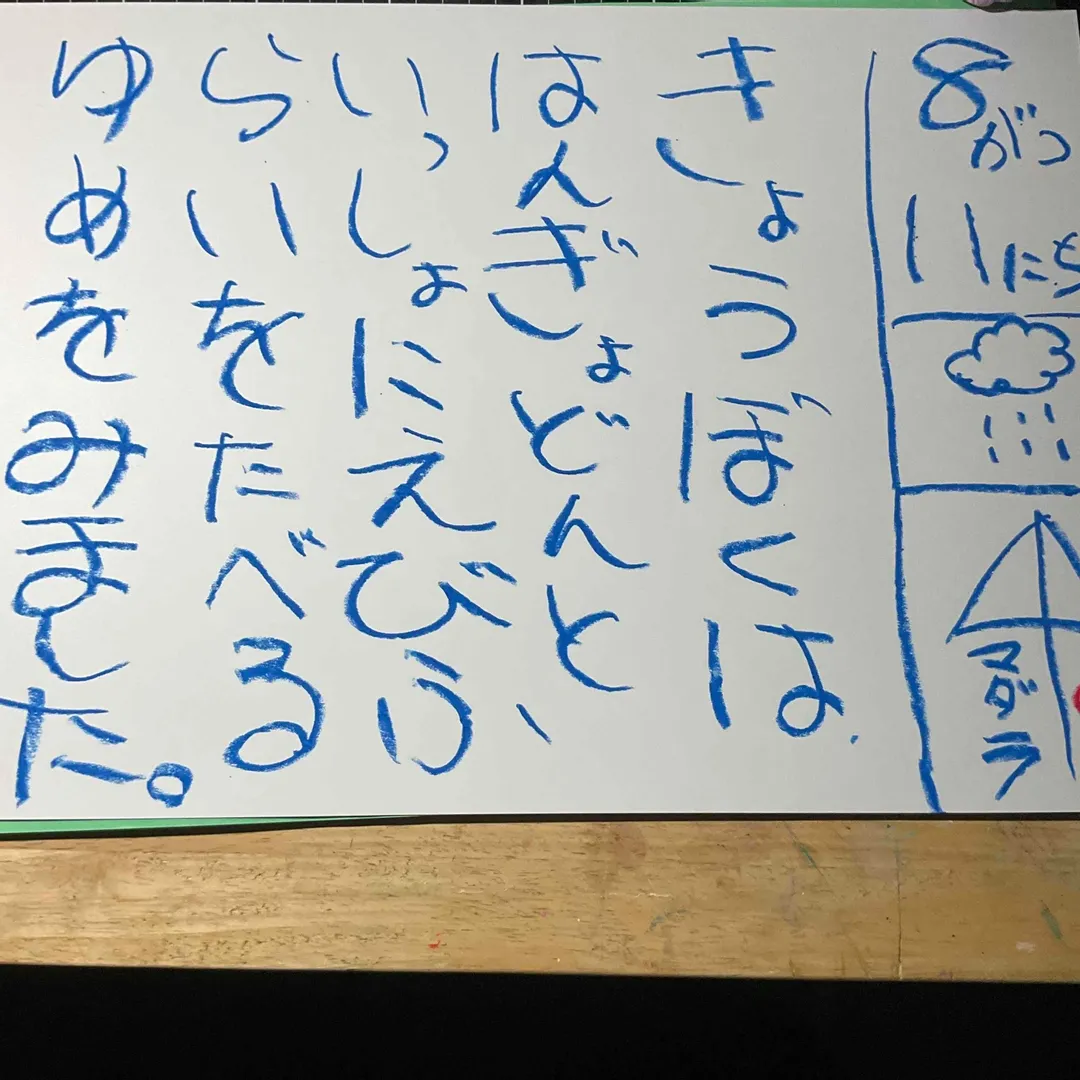 8がつ
11にち
マダラ
きょうぼくは、
はんぎょどんと、
いっしょにえびふ
らいをたべる
ゆめをみました。